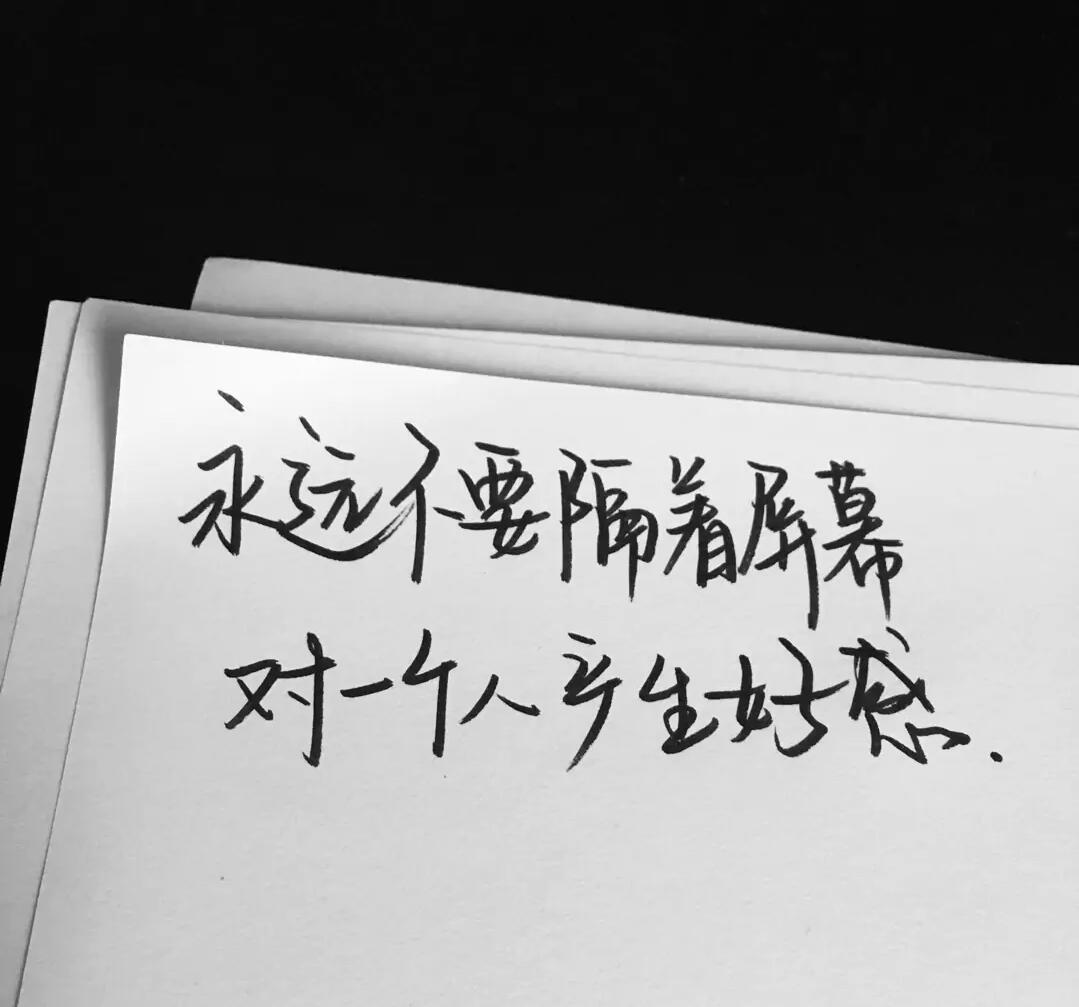 永远不要隔着屏幕
对一个人产生好感.